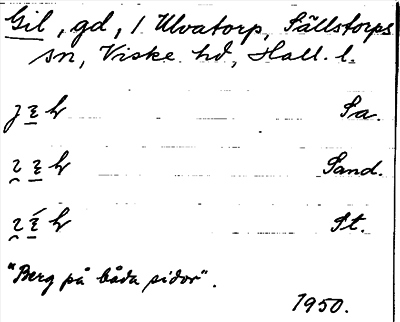 Gil, gd, 1 Ulvatorp, Sällstorps
sn, Viske hd, Hall. l.
Sa.
Sand.
St.
"Berg på båda sidor".
1950.